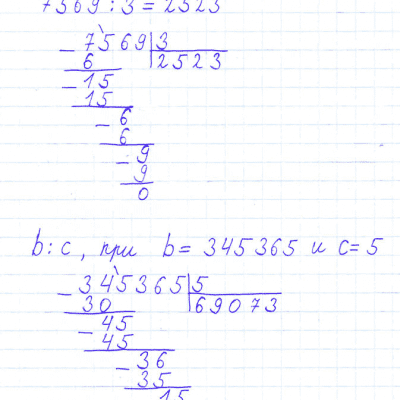 7569 : 3 = 2523
- 7569 | 3
6 | 2523
- 15
15
- 6
6
- 9
9
0
b : c , при b = 345365 и c = 5
- 345365 | 5
30 | 69073
- 45
45
- 36
35
15